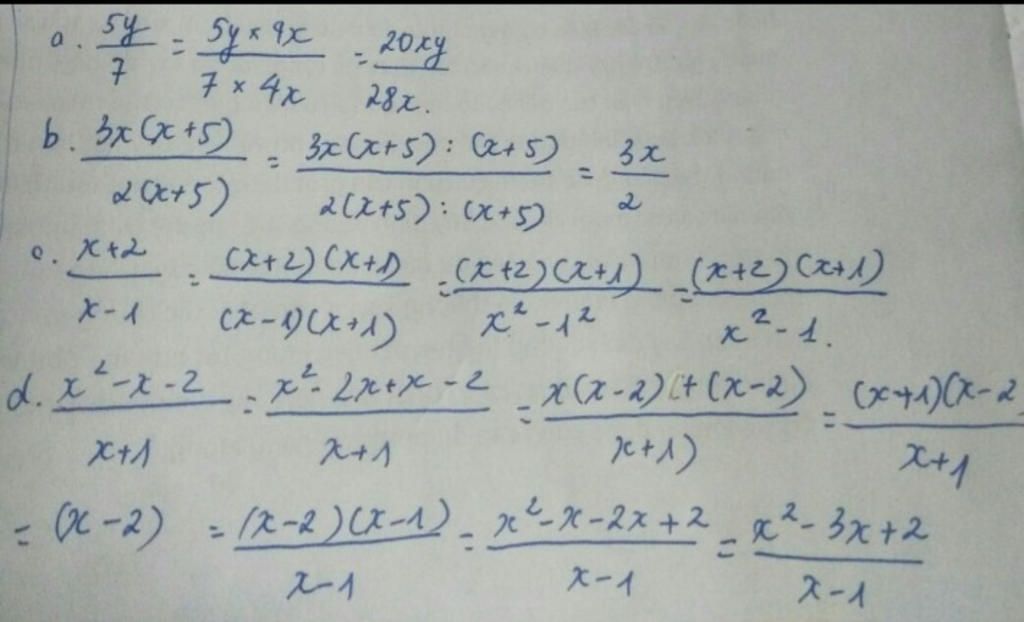 a. 5y/7 = 5y × 4x/7 × 4x = 20xy/28x.
b. 3x(x+5)/2(x+5) = 3x(x+5) : (x+5)/2(x+5) : (x+5) = 3x/2
c. x+2/x-1 = (x+2)(x+1)/(x-1)(x+1) = (x+2)(x+1)/x²-1² = (x+2)(x+1)/x²-1.
d. x²-x-2/x+1 = x²-2x+x-2/x+1 = x(x-2)(+(x-2)/x+1) = (x+1)(x-2/x+1
= (x-2) = (x-2)(x-1)/x-1 = x²-x-2x+2/x-1 = x²-3x+2/x-1